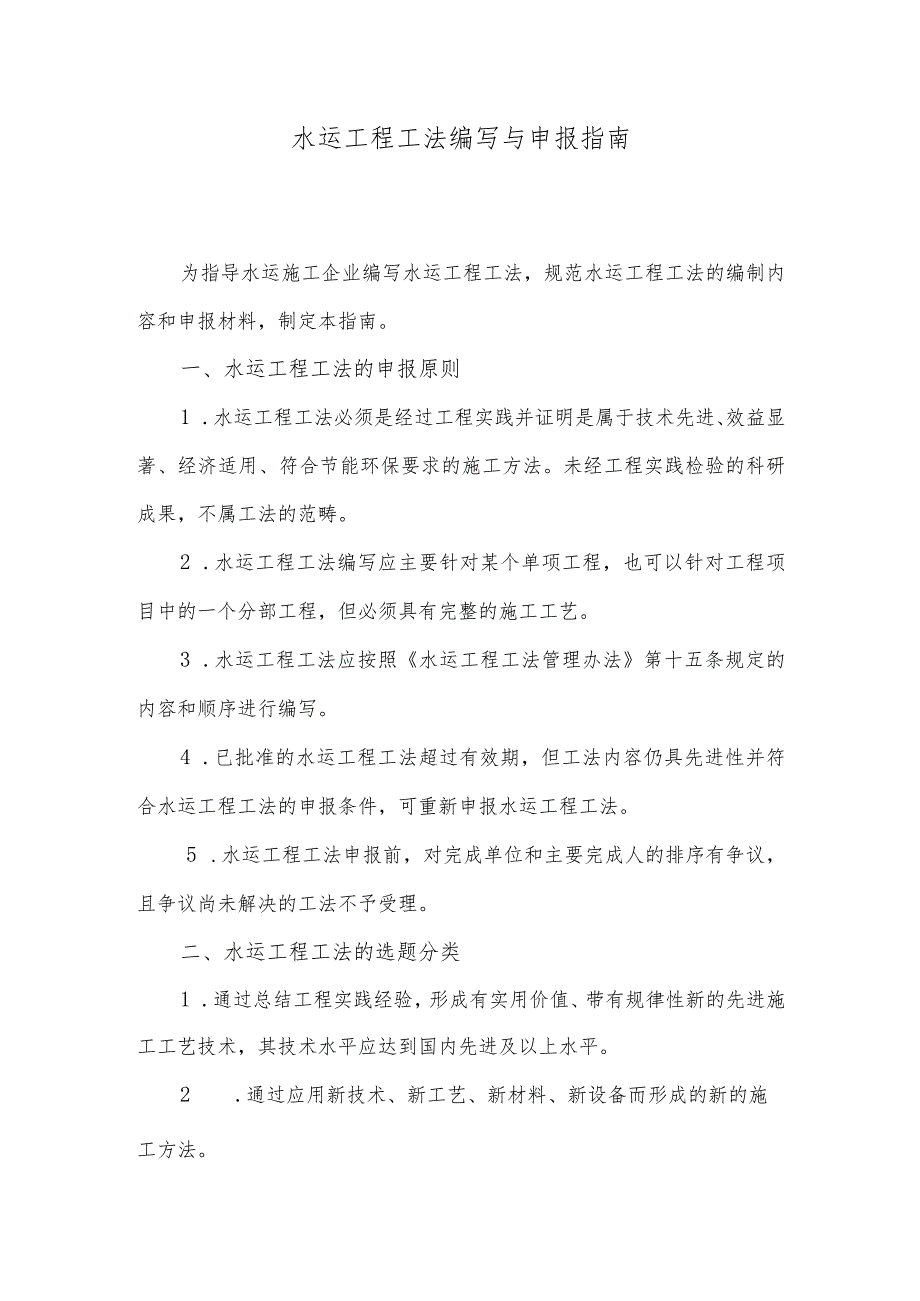 水运工程工法编写与申报指南
为指导水运施工企业编写水运工程工法，规范水运工程工法的编制内
容和申报材料，制定本指南。
一、水运工程工法的申报原则
1 .水运工程工法必须是经过工程实践并证明是属于技术先进、效益显
著、经济适用、符合节能环保要求的施工方法。未经工程实践检验的科研
成果，不属工法的范畴。
2 .水运工程工法编写应主要针对某个单项工程，也可以针对工程项
目中的一个分部工程，但必须具有完整的施工工艺。
3 .水运工程工法应按照《水运工程工法管理办法》第十五条规定的
内容和顺序进行编写。
4 .已批准的水运工程工法超过有效期，但工法内容仍具先进性并符
合水运工程工法的申报条件，可重新申报水运工程工法。
5 .水运工程工法申报前，对完成单位和主要完成人的排序有争议，
且争议尚未解决的工法不予受理。
二、水运工程工法的选题分类
1 .通过总结工程实践经验，形成有实用价值、带有规律性新的先进施
工工艺技术，其技术水平应达到国内先进及以上水平。
2 .通过应用新技术、新工艺、新材料、新设备而形成的新的施
工方法。